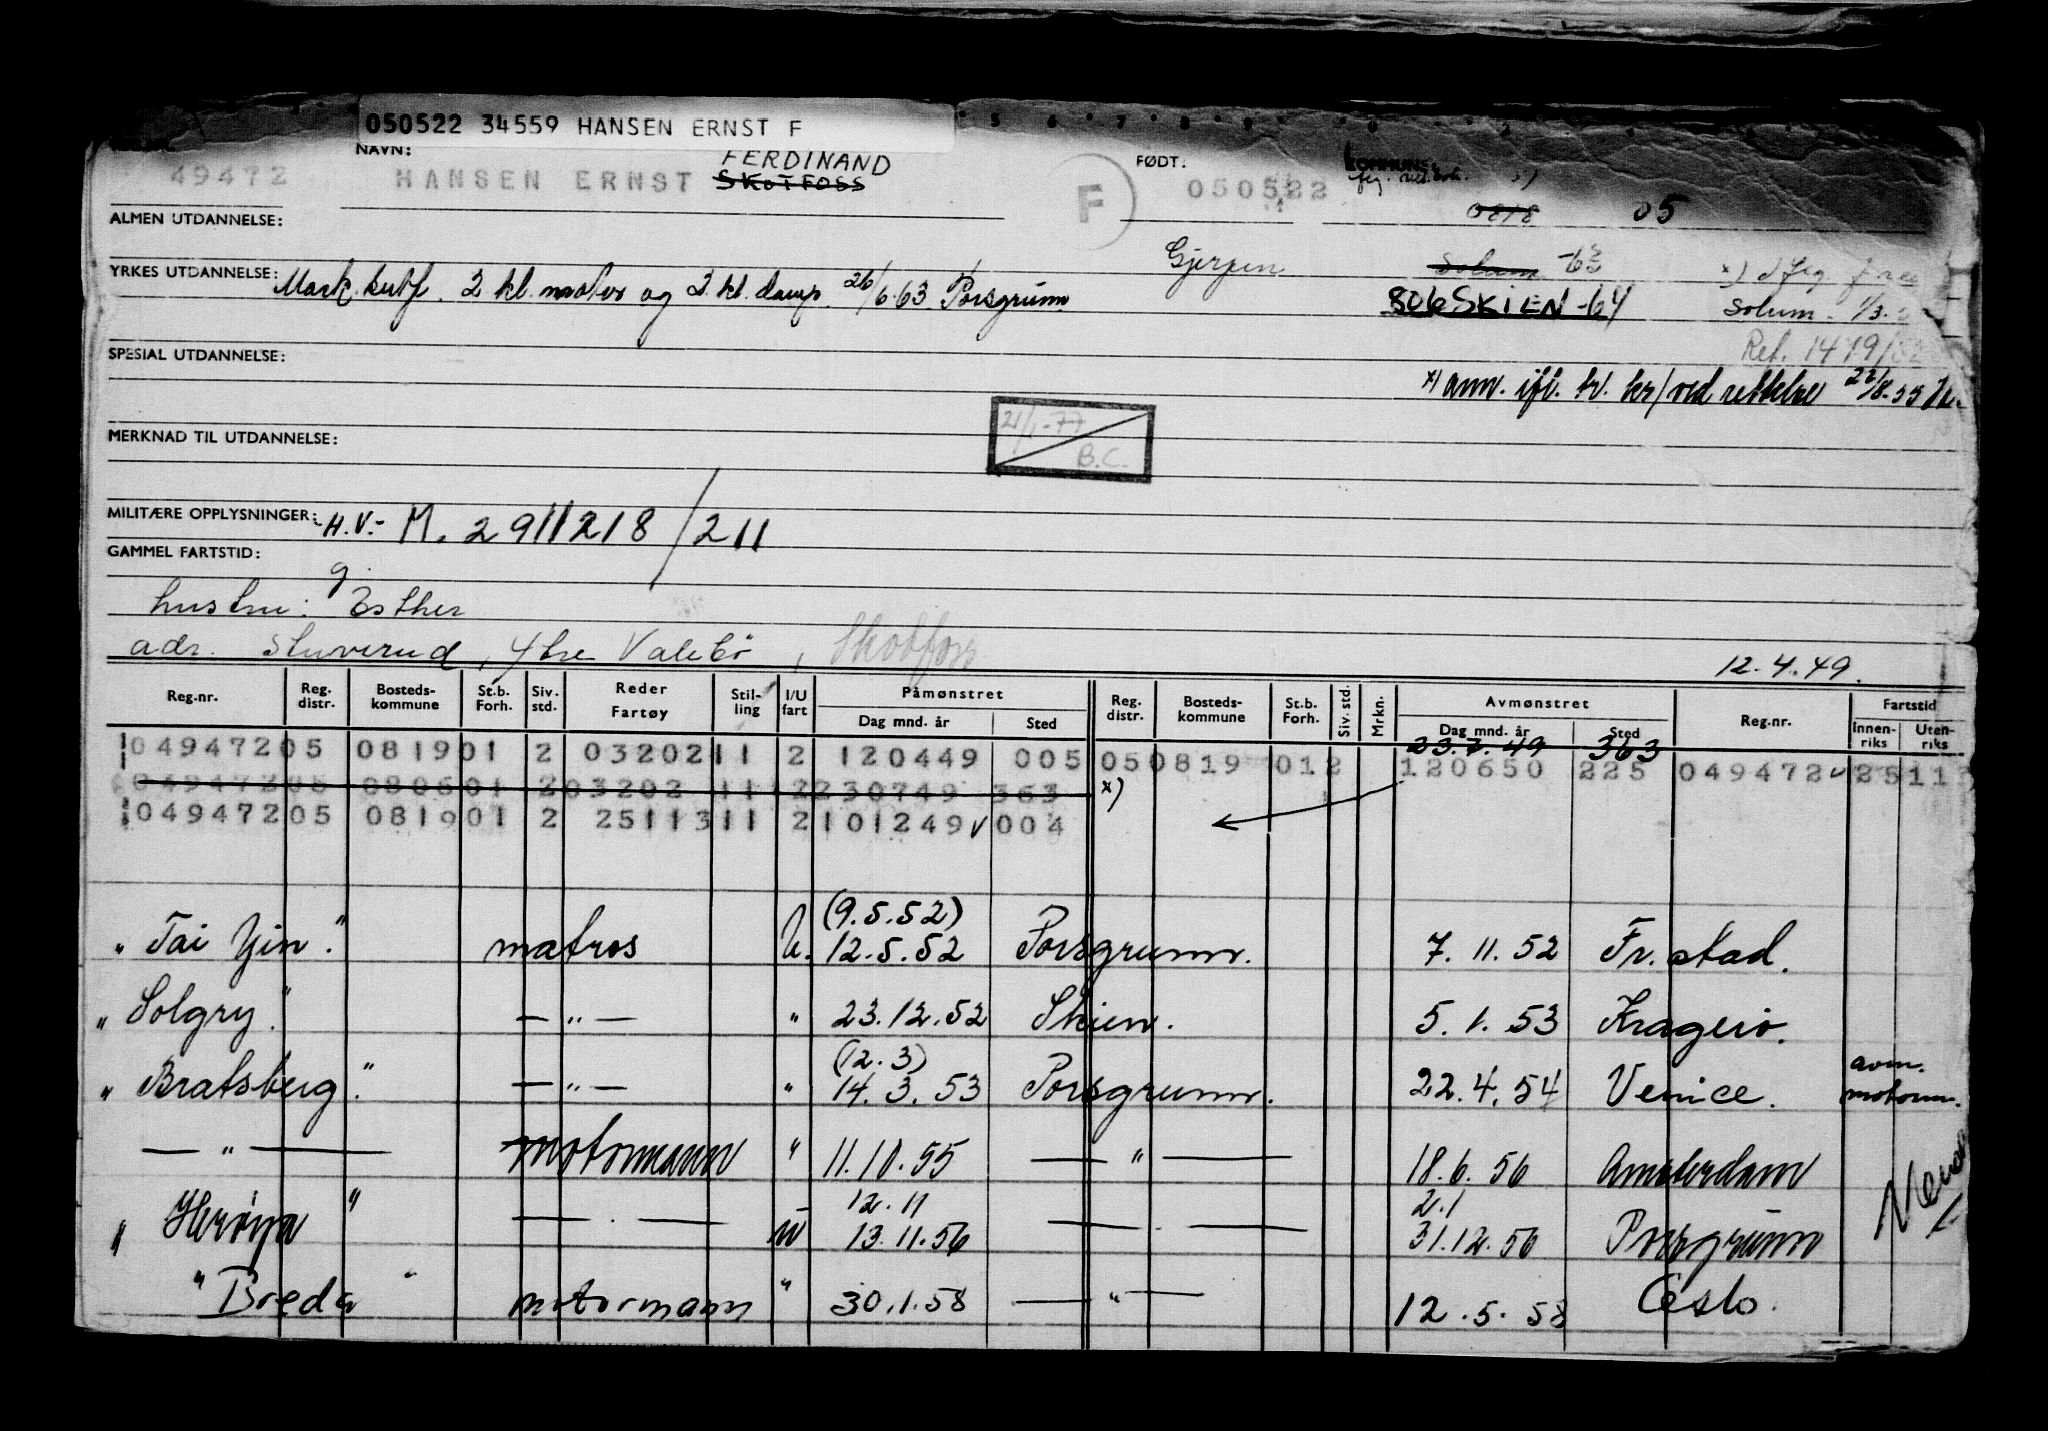 050522 34559 HANSEN ERNST F
NAVN: FERDINAND FØDT:
49472 HANSEN ERNST SKOTFOSS F 050522
0818 05
ALMEN UTDANNELSE:
Gjerpen Solum
YRKES UTDANNELSE: Mask. sertf. 2 kl. motor og 2 kl. damp. 26/6.63 Porsgrunn.
806 SKIEN -64 Solum
SPESIAL UTDANNELSE: Ret. 1479/52
x) ann. ifl. br/ved rettelse 22/8.55
21/1-77
B.C.
MERKNAD TIL UTDANNELSE:
MILITÆRE OPPLYSNINGER: H.V:- M. 2911218/211
GAMMEL FARTSTID:
g
hustru: Esther
adr. Stuverud, Ytre Valebø, Skotfoss
12.4.49.
Reg.nr. Reg. distr. Bosteds-kommune St.b. Forh. Siv. std. Reder Fartøy Stil-ling I/U fart Påmønstret Dag mnd. år Sted Reg. distr. Bosteds-kommune St.b. Forh. Siv. std. Mrkn. Avmønstret Dag mnd. år Sted Reg.nr. Fartstid Innen-riks Uten-riks
23.7.49 363
049472 05 0819 01 2 03202 11 2 120449 005 05 0819 01 2 120650 225 049472 25 11
049472 05 0806 01 2 03202 11 2 230749 363 x)
049472 05 0819 01 2 25113 11 2 101249 004
(9.5.52)
" Tai Yin." matros U. 12.5.52 Porsgrunn. 7.11.52 Fr.stad.
" Solgry." — " — " 23.12.52 Skien. 5.1.53 Kragerø.
(12.3)
" Bratsberg." — " — " 14.3.53 Porsgrunn. 22.4.54 Venice. avm. motorm.
— " — motormann " 11.10.55 — " — 18.6.56 Amsterdam
12.11 2.1
" Herøya " — . — u 13.11.56 — . — 31.12.56 Porsgrunn
" Breda " motormann " 30.1.58 — " — 12.5.58 Oslo.